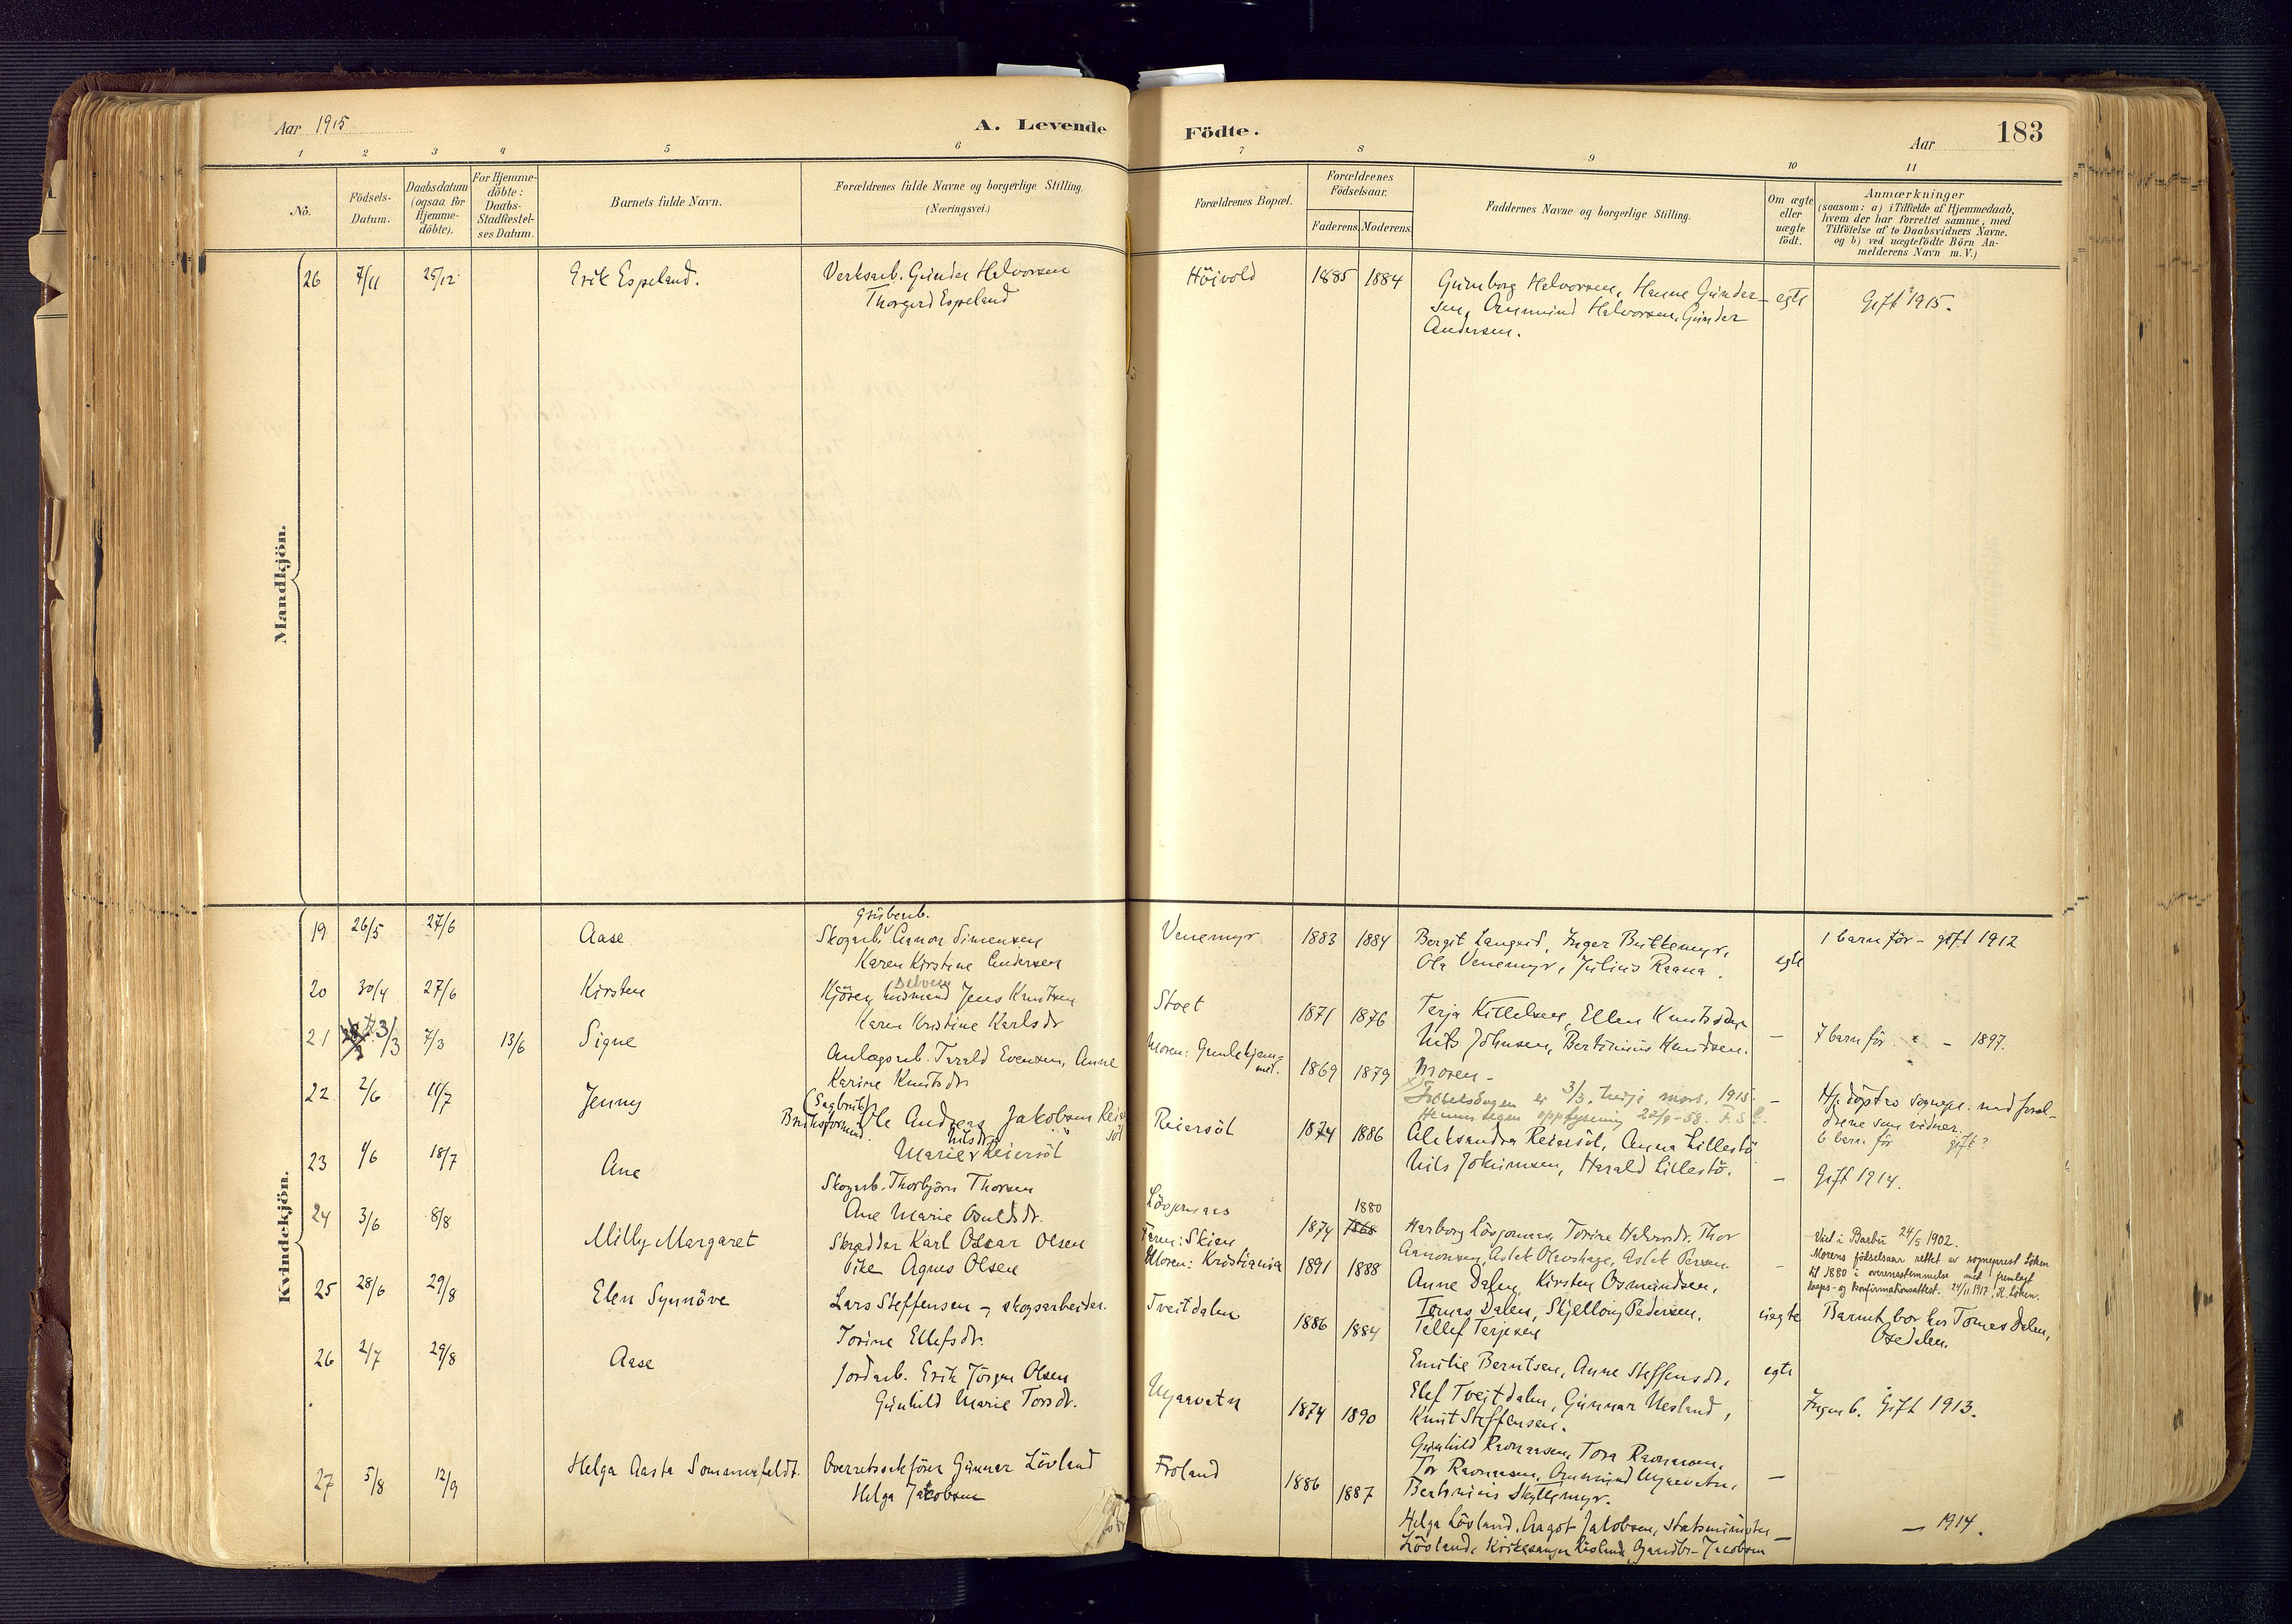 Aar 1915
A. Levende
Födte.
Aar
183
1 2 3 4 5 6 7 8 9 10 11
No.
Födsels-
Datum.
Daabsdatum
(ogsaa for
Hjemme-
döbte).
For Hjemme-
döbte:
Daabs-
Stadfæstel-
ses Datum.
Barnets fulde Navn.
Forældrenes fulde Navne og borgerlige Stilling.
(Næringsvei.)
Forældrenes Bopæl.
Forældrenes
Födselsaar.
Faderens. Moderens.
Faddernes Navne og borgerlige Stilling.
Om ægte
eller
uægte
födt.
Anmærkninger
(saasom: a) i Tilfælde af Hjemmedaab,
hvem der har forrettet samme, med
Tilföielse af to Daabsvidners Navne.
og b) ved uægtefödte Börn An-
melderens Navn m. V.)
Mandkjön.
26 7/11 25/12 Erik Espeland. Verksarb. Gunder Halvorsen
Thorgerd Espeland
Höivold 1885 1884 Gunborg Halvorsen, Hanne Gunder-
sen, Ommund Halvorsen, Gunder
Andersen.
egte Gift 1915.
Kvindekjön.
19 26/5 27/6 Aase
Grubearb.
Skogarb. Aanon Simensen
Karen Kirstine Andersen
Venemyr 1883 1884 Bergit Langeid, Inger Buttemyr,
Ola Venemyr, Julius Raana.
egte 1 barn för - gift 1912
20 30/4 27/6 Kirsten
Kjören husmand Jens Knutsen
Karen Kristine Karlsdr
Stoet 1871 1876 Terja Kittelsen, Ellen Knutsdtr
Nils Johnsen, Bertinius Knudsen.
- 7 barn för. " - 1897.
21 3/3 7/3 13/6 Signe
Anlægsarb. Tarald Evensen, Anne
Karine Knutsdr
Moren: 1869 1879 Moren -
Födselsdagen er 3/3, tredje mars, 1915.
oppdysning 22/9-58.
- Hj. döpt av sognepr. med foræl-
drene som vidner.
6 barn för gift?
22 2/6 11/7 Jenny
(Sagbruk)
Bruksformand. Ole Andreas Jakobsen Reier
söl
Nilsdr
Marie Reiersöl
Reiersöl 1874 1886 Aleksandra Reiersöl, Anna Lillestö
Nils Jokimsen, Harald Lillestö.
- Gift 1914.
23 1/6 18/7 Ane
Skogarb. Thorbjörn Thorsen
Ane Marie Osuldsdr.
Lövjomaas 1874 1880 1868 Harborg Lövjomaas, Torine Halvorsdr. Thor
Aanonsen, Aslak Olsvshage, Aslak Persen
- Viet i Barbu 24/5 1902.
Morens födselsaar rettet av sogneprest Löken
til 1880 i overensstemmelse med fremlagt
daaps- og konfirmationsattest. 24/11 1917, H. Löken.
24 3/6 8/8 Milly Margaret
Skrædder Karl Oskar Olsen
Pike Agnes Olsen
Faren: Skien
Moren: Kristiania 1891 1888 Anne Dalen, Kirsten Osmundsen,
Tomas Dalen, Skjellong Pedersen,
Tellef Terjesen
uegte Barnet bor hos Tomas Dalen,
Osedalen.
25 28/6 29/8 Elen Synnöve
Lars Steffensen - skogsarbeider.
Torine Ellefsdr.
Tveitdalen 1886 1884 Emilie Berntsen, Anne Steffensdr,
Elef Tveitdalen, Gunnar Nesland,
Knut Steffensen.
egte Ingen b. Gift 1913.
26 2/7 29/8 Aase
Jordarb. Erik Jörgen Olsen
Gunhild Marie Torsdr.
Mjaavatn 1874 1890 Gunhild Ravnaasen, Tora Ravnaasen,
Tor Ravnaasen, Ommund Mjaavatn,
Bertinius Skyttemyr.
-
27 5/8 12/9 Helga Aasta Sommerfeldt.
Overretssakförer Gunnar Lövland
Helga Jacobsen
Froland 1886 1887 Helga Lövland, Aagot Jakobsen, Statsminister
Lövland, Kirkesanger Lövland, Gaardbr. Jacobsen
- - 1914.